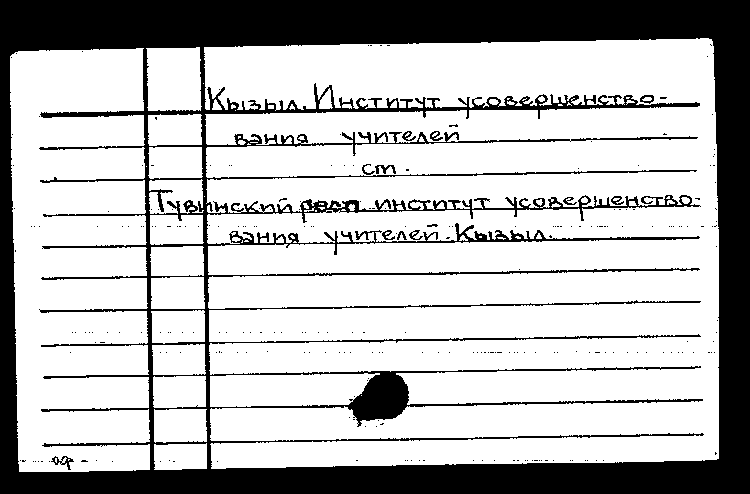 Кызыл. Институт усовершенство-
вания учителей
ст.
Тувинский респ. институт усовершенство-
вания учителей. Кызыл.